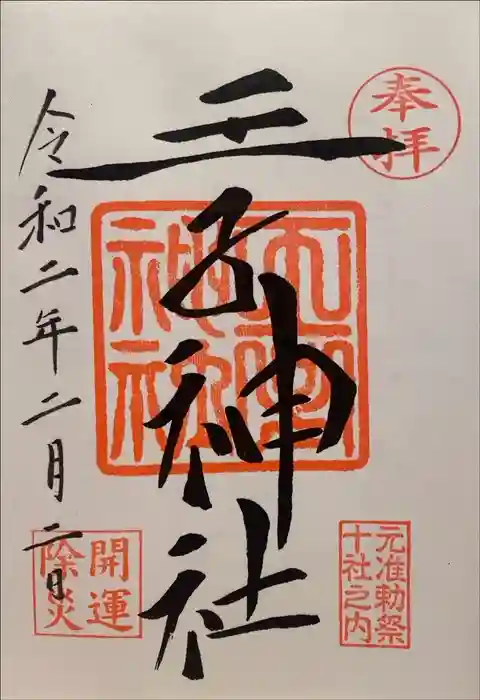 奉拝
元准勅祭
十社之内
王子神社
開運
除災
令和二年二月二日